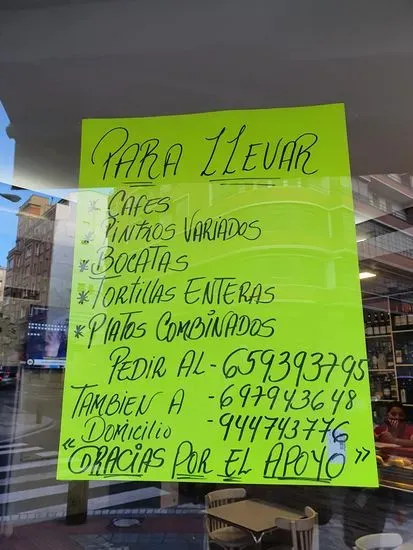 PARA LLEVAR
* CAFES
* PINTXOS VARIADOS
* BOCATAS
* TORTILLAS ENTERAS
* PLATOS COMBINADOS
PEDIR AL - 659393795
TAMBIEN A - 697943648
DOMICILIO - 944743776
"GRACIAS POR EL APOYO"